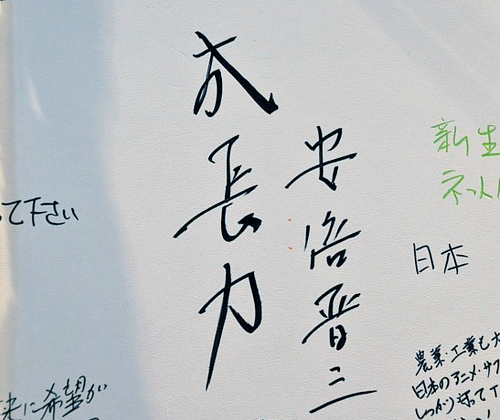 成長力
安倍晋三
って下さい
に希望が
新生
ネット
日本
農業、工業も大
日本のアニメ・サブ
しっかり守って